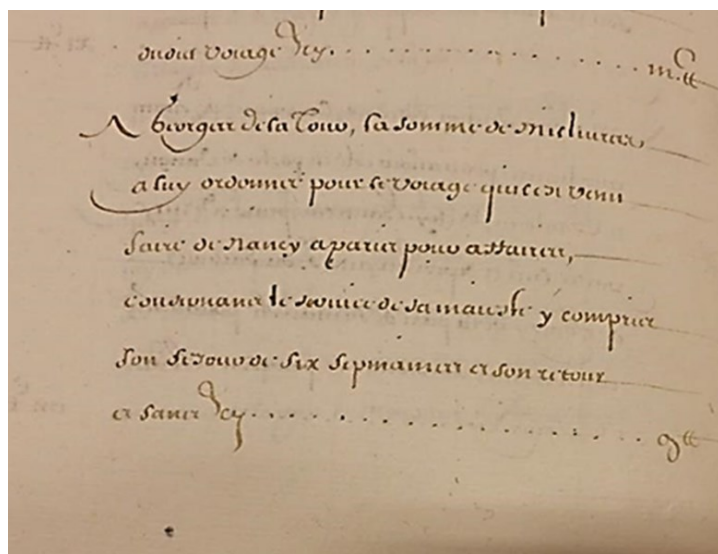 dudict voiage Icy . . . . . . . . . . . . . . . . m. C tt
A George de la Tour, la somme de Mil livres,
a luy ordonnée pour le voiage qu'il est venu
faire de Nancy a paris pour affaires,
concernant le service de sa maiesté y compris
son sejour de six sepmaines et son retour
Icy . . . . . . . . . . . . . . . . tt